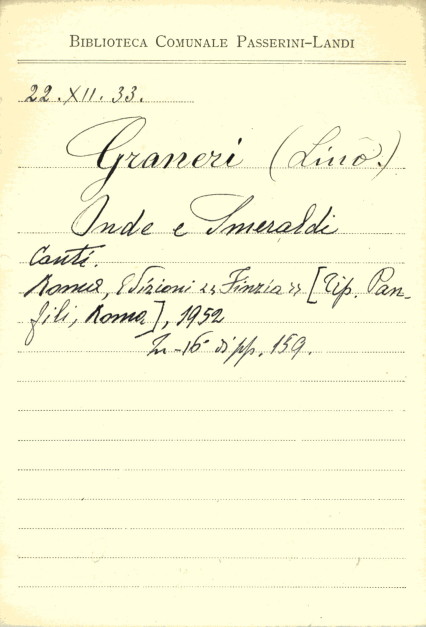 BIBLIOTECA COMUNALE PASSERINI-LANDI
22.XII.33.
Graneri (Lino.)
Onde e Smeraldi
Canti.
Roma, Edizioni "Finzia" [Tip. Pan-
fili, Roma], 1952
In-16° di pp. 159.